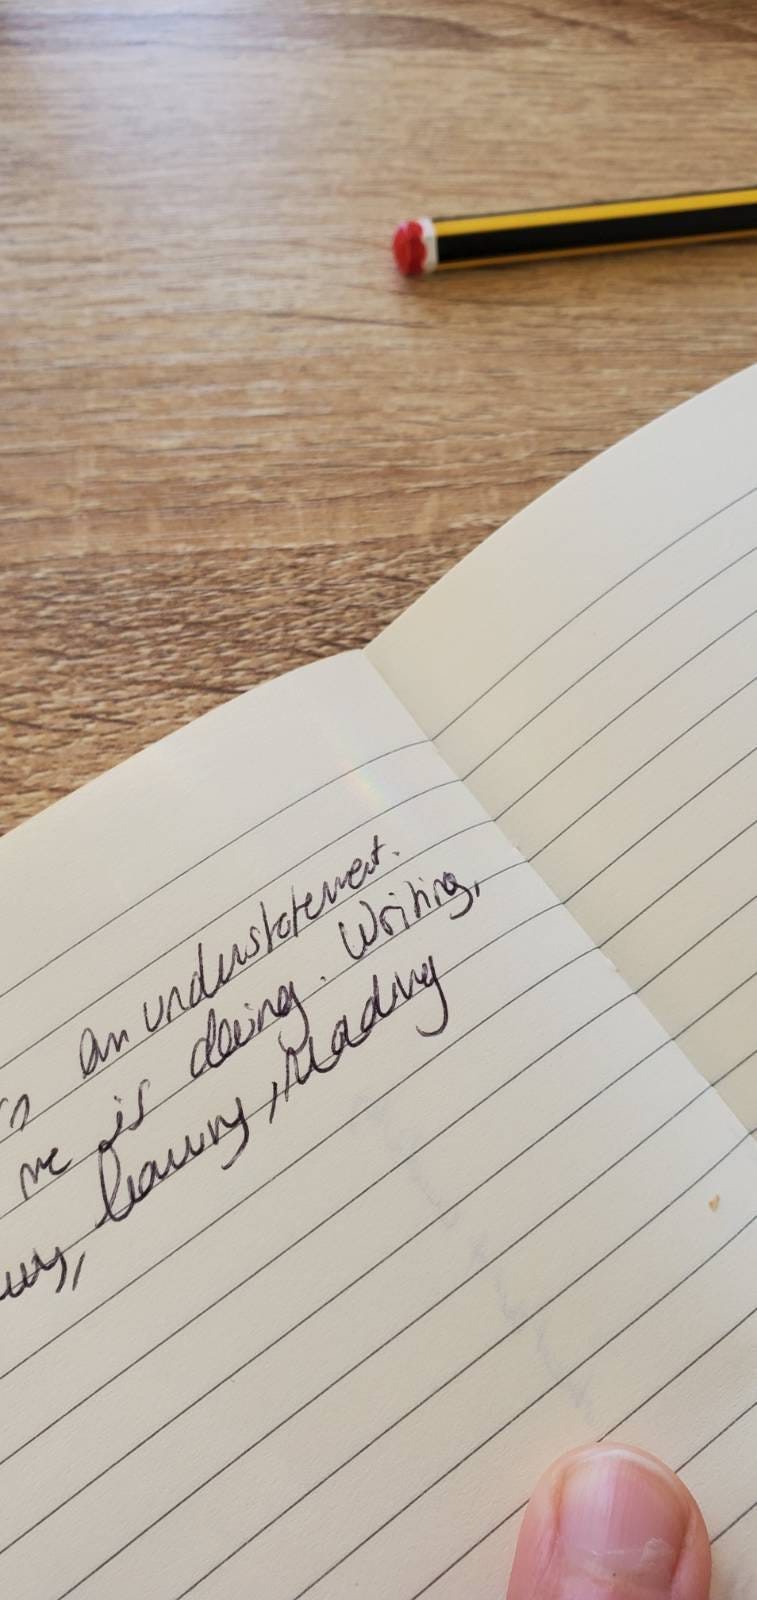 an understatement.
me is doing. Writing,
learning, reading